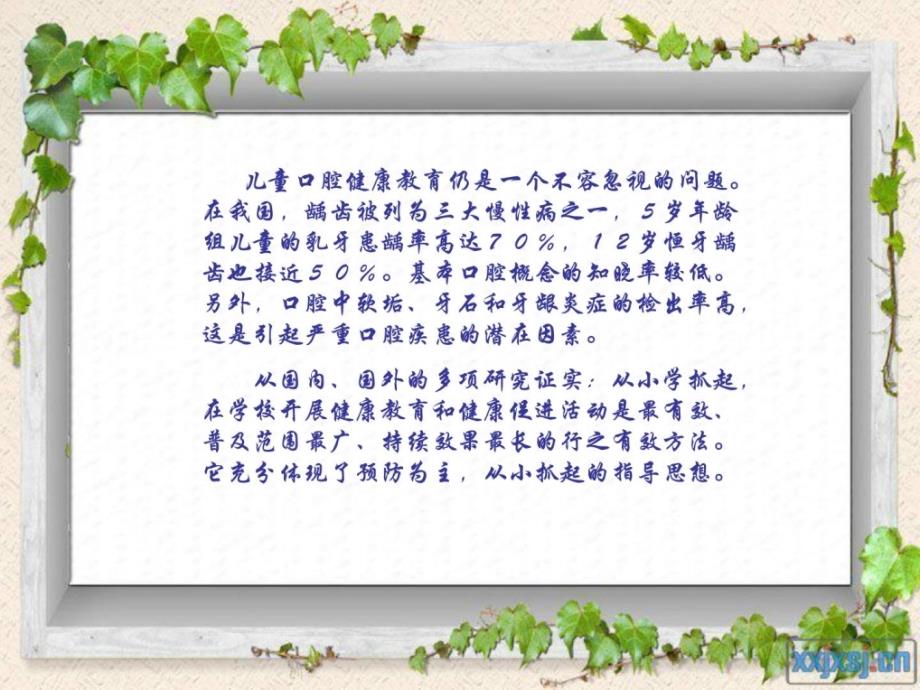 儿童口腔健康教育仍是一个不容忽视的问题。
在我国，龋齿被列为三大慢性病之一，５岁年龄
组儿童的乳牙患龋率高达７０％，１２岁恒牙龋
齿也接近５０％。基本口腔概念的知晓率较低。
另外，口腔中软垢、牙石和牙龈炎症的检出率高，
这是引起严重口腔疾患的潜在因素。
从国内、国外的多项研究证实：从小学抓起，
在学校开展健康教育和健康促进活动是最有效、
普及范围最广、持续效果最长的行之有效方法。
它充分体现了预防为主，从小抓起的指导思想。
xxjxsj.cn